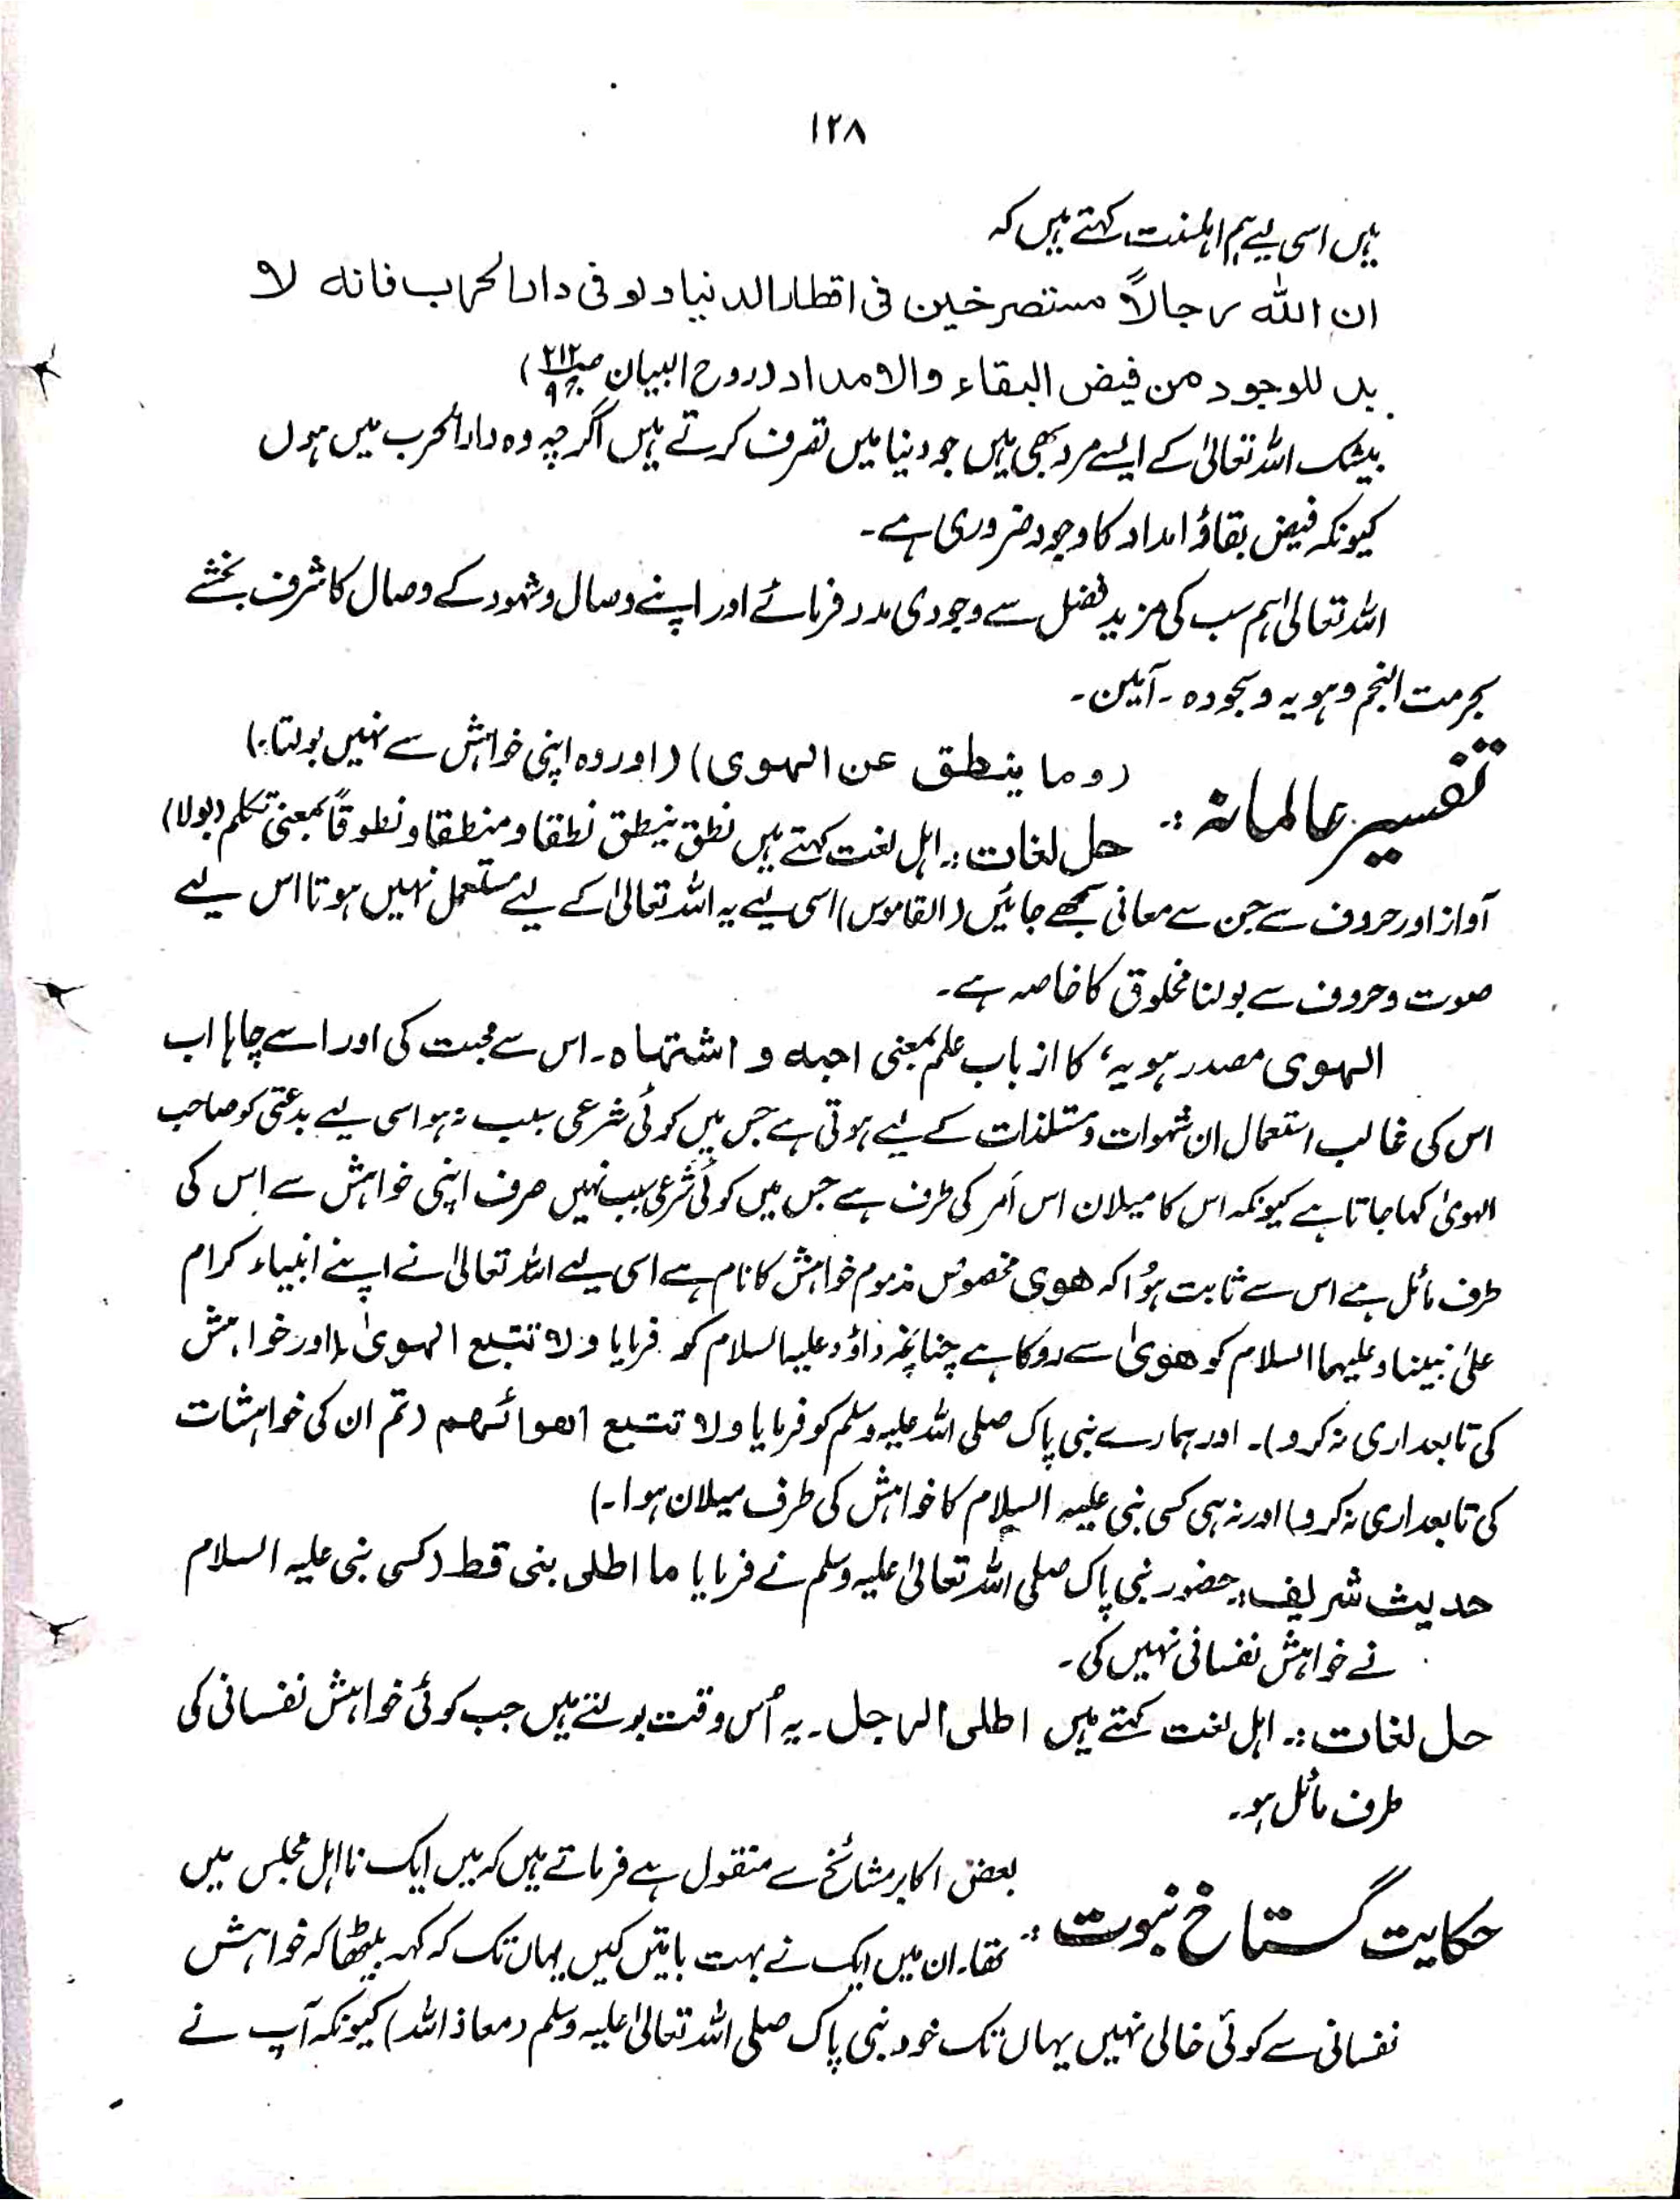 ۱۲۸
ہیں اسی لیے ہم اہلسنت کہتے ہیں کہ
ان اللہ رجالاً مستصرخین فی اقطار الدنیا و لو فی دار الحراب فانہ لا
بد للوجود من فیض البقاء والامداد (روح البیان ص۲۱۲ ج۹)
بیشک اللہ تعالیٰ کے ایسے مرد بھی ہیں جو دنیا میں تصرف کرتے ہیں اگرچہ وہ دارالحرب میں ہوں
کیونکہ فیض بقاؤ امداد کا وجود ضروری ہے۔
اللہ تعالیٰ ہم سب کی مزید فضل سے وجودی مدد فرمائے اور اپنے وصال و شہود کے وصال کا شرف بخشے
بحرمت النجم و ہویہ و سجودہ ۔ آمین۔
تفسیر عالمانہ :۔ (و ما ینطق عن الہوی) (اور وہ اپنی خواہش سے نہیں بولتا۔)
حل لغات :۔ اہل لغت کہتے ہیں نطق ینطق نطقا و منطقا و نطوقاً بمعنی تکلم (بولا)
آواز اور حروف سے جن سے معانی سمجھے جائیں (القاموس) اسی لیے یہ اللہ تعالیٰ کے لیے مستعمل نہیں ہوتا اس لیے
صوت و حروف سے بولنا مخلوق کا خاصہ ہے۔
الہوی مصدر ہویہ، کا از باب علم بمعنی احبہ و اشتہاہ۔ اس سے محبت کی اور اسے چاہا اب
اس کی غالب استعمال ان شہوات و مستلذات کے لیے ہوتی ہے جس میں کوئی شرعی سبب نہ ہو اسی لیے بدعتی کو صاحب
الہویٰ کہا جاتا ہے کیونکہ اس کا میلان اس اَمر کی طرف ہے جس میں کوئی شرعی سبب نہیں صرف اپنی خواہش سے اس کی
طرف مائل ہے اس سے ثابت ہُوا کہ ھوی مخصوص مذموم خواہش کا نام ہے اسی لیے اللہ تعالیٰ نے اپنے انبیاء کرام
علیٰ نبینا و علیہما السلام کو ھویٰ سے روکا ہے چنانچہ داؤد علیہ السلام کو فرمایا ولا تتبع الہویٰ (اور خواہش
کی تابعداری نہ کرو)۔ اور ہمارے نبی پاک صلی اللہ علیہ وسلم کو فرمایا ولا تتبع اھوائھم (تم ان کی خواہشات
کی تابعداری نہ کرو) اور نہ ہی کسی نبی علیہ السلام کا خواہش کی طرف میلان ہوا۔)
حدیث شریف :۔ حضور نبی پاک صلی اللہ تعالیٰ علیہ وسلم نے فرمایا ما اطلی بنی قط (کسی نبی علیہ السلام
نے خواہش نفسانی نہیں کی۔
حل لغات :۔ اہل لغت کہتے ہیں اطلی الرجل ۔ یہ اُس وقت بولتے ہیں جب کوئی خواہش نفسانی کی
طرف مائل ہو۔
حکایت گستاخ نبوت :۔ بعض اکابر مشائخ سے منقول ہے فرماتے ہیں کہ میں ایک نااہل مجلس میں
تھا۔ ان میں ایک نے بہت باتیں کیں یہاں تک کہ کہہ بیٹھا کہ خواہش
نفسانی سے کوئی خالی نہیں یہاں تک خود نبی پاک صلی اللہ تعالیٰ علیہ وسلم (معاذ اللہ) کیونکہ آپ نے